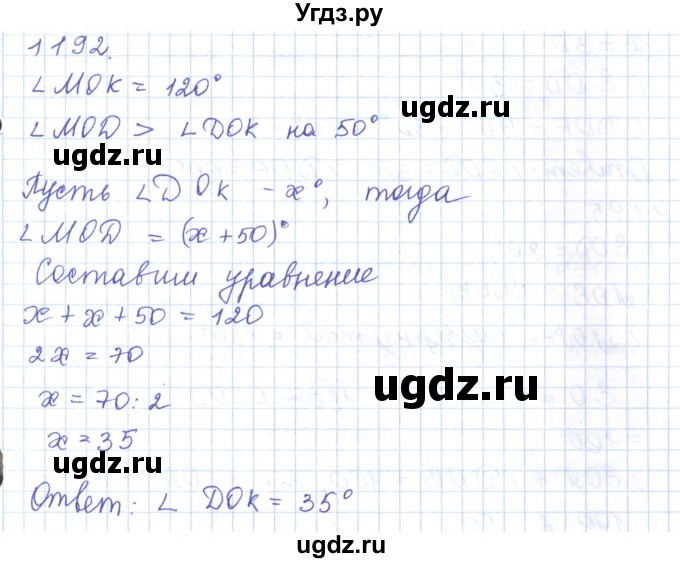 Угдз.ру
1192.
∠MOK = 120°
ugdz.ru
∠MOD > ∠DOK на 50°
ugdz.ru
Пусть ∠DOK - x°, тогда
∠MOD = (x+50)°
Составим уравнение
x + x + 50 = 120
2x = 70
ugdz.ru
x = 70:2
x = 35
ugdz.ru
Ответ: ∠ DOK = 35°
ugdz.ru